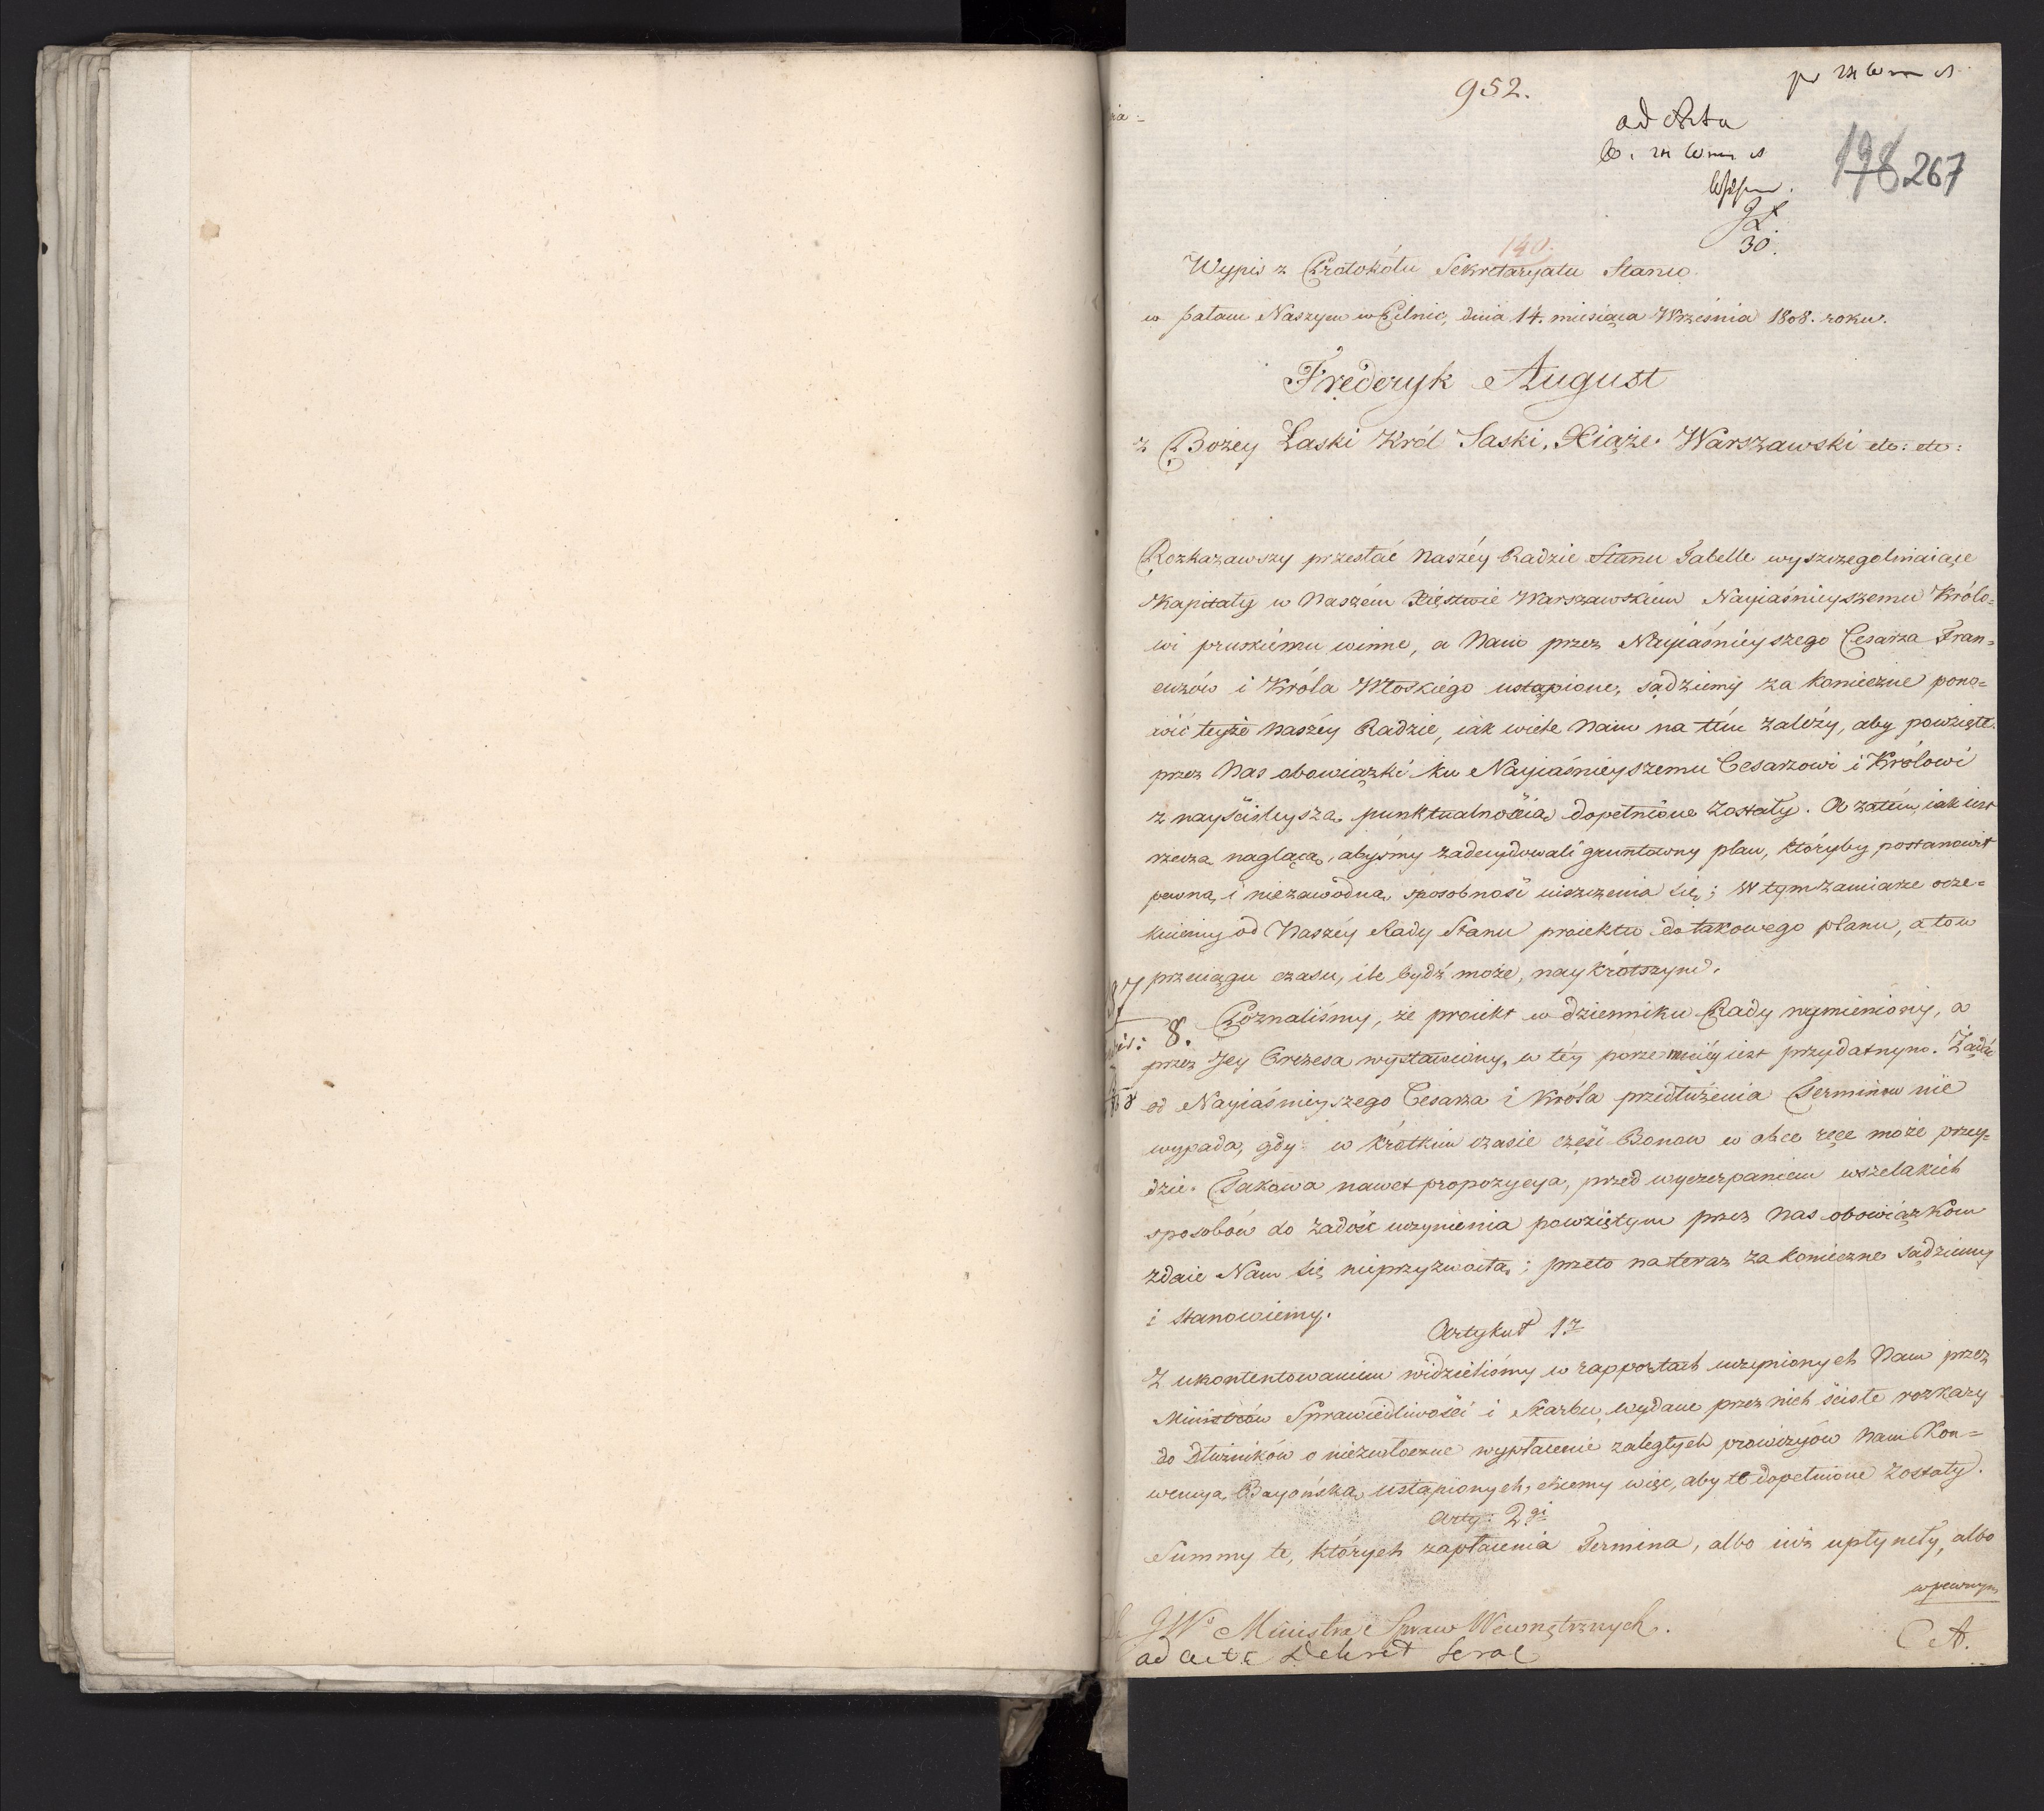 952.
ad Acta
198 267
30.
140.
Wypis z Protokółu Sekretaryatu Stanu
w pałacu Naszym w Pilnic, dnia 14. miesiąca Września 1808. roku.
Fryderyk August
z Bożey Łaski Król Saski, Xiąże Warszawski etc: etc:
Rozkazawszy przesłać Naszéy Radzie Stanu Tabelle wyszczegolniaiące
Kapitały w Naszém Xięstwie Warszawskiem Nayiaśnieyszemu Królo=
wi pruskiému winne, a Nam przez Nayiaśnieyszego Cesarza Fran=
cuzów i Króla Włoskiégo ustąpione, sądziemy za konieczne pono=
wić teyże Naszéy Radzie, iak wiele Nam na tém zależy, aby powzięte
przez Nas obowiązki ku Nayiaśnieyszemu Cesarzowi i Królowi
z nayściśleyszą punktualnością dopełnione zostały. A zatém, iak iest
rzeczą naglącą, abyśmy zadecydowali gruntowny plan, któryby postanowił
pewną i niezawodną sposobność uiszczenia się; w tym zamiarze ocze=
kuiemy od Naszéy Rady Stanu proiektu do takowego planu, a to w
przeciągu czasu, ile bydź może, naykrótszym.
8. Poznaliśmy, że proiekt w dzienniku Rady wymieniony, a
przez Jey Prezesa wystawiony, w téy porze mniéy iest przydatnym. Żądać
od Nayiaśnieyszego Cesarza i Króla przedłużenia Terminow nie
wypada, gdy w krótkim czasie część Bonow w obce ręce może przey=
dzie. Takowa nawet propozycya, przed wyczerpaniem wszelakich
sposobów do zadość uczynienia powziętym przez Nas obowiązkom
zdaie Nam się nieprzyzwoitą; przeto na teraz za konieczne sądziemy
i stanowiemy.
Artykuł 1y
Z ukontentowaniem widzieliśmy w rapportach uczynionych Nam przez
Ministrów Sprawiedliwości i Skarbu, wydane przez nich ścisłe rozkazy
do Dłużników o niezwłoczne wypłacenie zaległych prowizyów Nam Kon=
wencyą Bayońską ustąpionych, chcemy więc, aby te dopełnione zostały.
Arty: 2gi
Summy te, których zapłacenia Termina, albo iuż upłynęły, albo
w pewnym
JWo Ministra Spraw Wewnętrznych.
ad acta Dekret